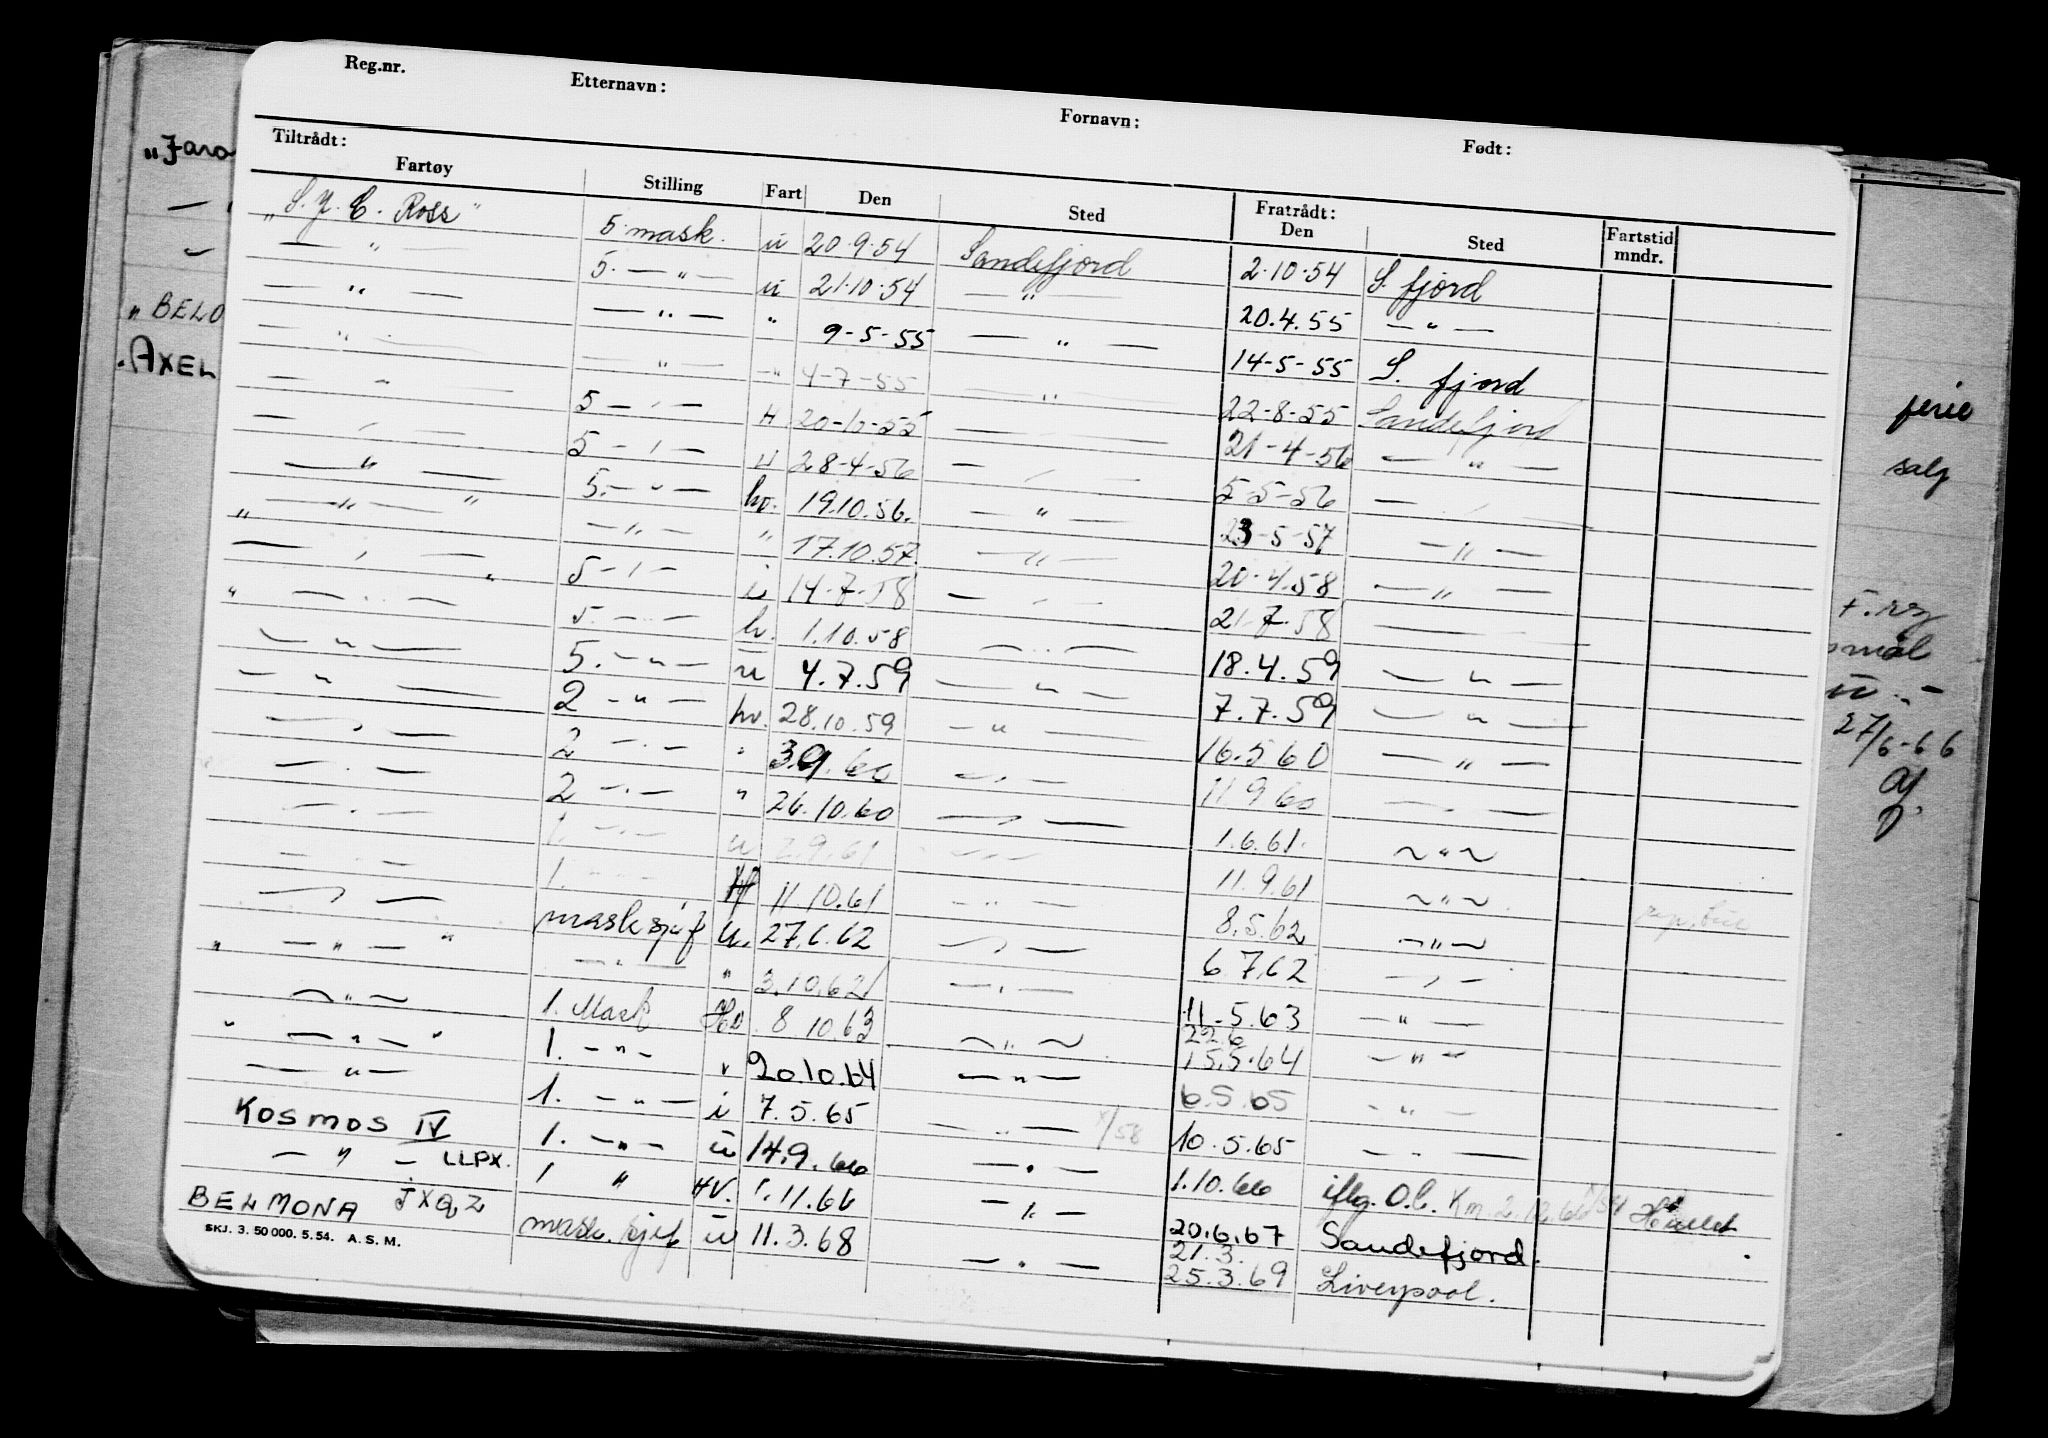 Reg.nr. Etternavn: Fornavn: Født:
Tiltrådt: Fratrådt:
Fartøy Stilling Fart Den Sted Den Sted Fartstid mndr.
"S. J. C. Ross" 5. mask. u 20.9.54 Sandefjord 2.10.54 S. fjord
— " — 5. — " — u 21.10.54 — " — 20.4.55 — " —
— " — — " — " 9-5-55 — " — 14-5-55 S. fjord
— " — — " — " 4-7-55 — " — 22-8-55 Sandefjord
— " — 5 — " — H 20-10-55 — " — 21-4-56 — " —
— " — 5 — " — U 28-4-56 — " — 5-5-56 — " —
— " — 5. — " — hv. 19.10.56. — " — 23-5-57 — " —
" — " — " — " — " 17.10.57. — " — 20.4.58 — " —
— " — 5 — " — i 14-7-58 — " — 21.7.58 — " —
" — " — " 5. — " — hv. 1.10.58 — " — 18.4.59 — " —
— " — 5. — " — u 4.7.59 — " — 7.7.59 — " —
— " — 2 — " — hv. 28.10.59 — " — 16.5.60 — " —
— " — 2 — " — " 3.9.60 — " — 11.9.60 — " —
— " — 2 — " — " 26.10.60 — " — 1.6.61. — " —
— " — 1. — " — u 2.9.61 — " — 11.9.61 — " —
— " — 1. — " — Hf 11.10.61 — " — 8.5.62 — " —
— " — masksjef u. 27.6.62 — " — 6.7.62 — " —
" — " — " — " — " 3.10.62 — " — 11.5.63 — " —
— " — 1. Mask. Hv. 8.10.63 — " — 22.6 15.5.64 — " —
" — " — " 1. — " — " 20.10.64 — " — 6.5.65 — " —
— " — 1. — " — i 7.5.65 — " — 10.5.65 — " —
KOSMOS IV 1. — " — u 14.9.66 — " — 1.10.66 iflg. O.C. Km.
— " — LLPX. 1 " HV. 1.11.66 — " — 20.6.67 Sandefjord.
BELMONA JXQZ mask. sjef u 11.3.68 — " — 21.3. 25.3.69 Liverpool.
SKJ. 3. 50 000. 5. 54. A. S. M.
"Jara
"BELO
AXEL
ferie
salg
27/6-66